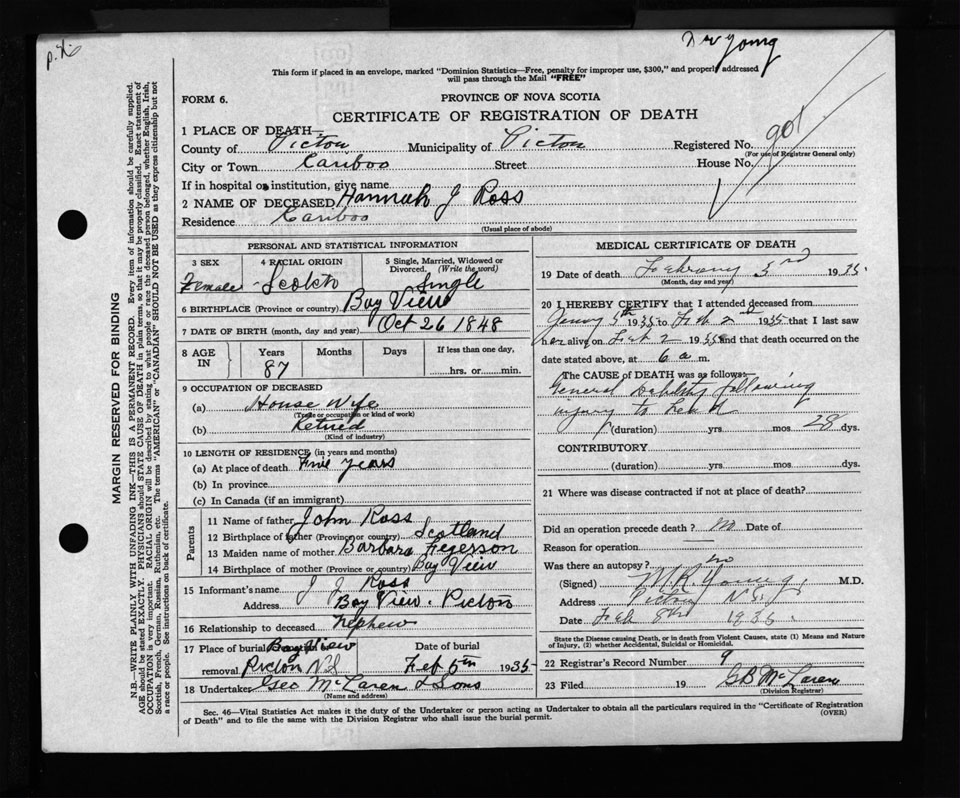 Dr Young
This form if placed in an envelope, marked "Dominion Statistics—Free, penalty for improper use, $300," and properly addressed
will pass through the Mail "FREE"
FORM 6.
PROVINCE OF NOVA SCOTIA
CERTIFICATE OF REGISTRATION OF DEATH
1 PLACE OF DEATH—
County of Pictou Municipality of Pictou Registered No. 901
(For use of Registrar General only)
City or Town Cariboo Street House No.
If in hospital or institution, give name
2 NAME OF DECEASED Hannah J Ross
Residence Cariboo
(Usual place of abode)
PERSONAL AND STATISTICAL INFORMATION
3 SEX Female
4 RACIAL ORIGIN Scotch
5 Single, Married, Widowed or Divorced. (Write the word) Single
6 BIRTHPLACE (Province or country) Bay View
7 DATE OF BIRTH (month, day and year) Oct 26 1848
8 AGE IN Years 87 Months Days If less than one day, hrs. or min.
9 OCCUPATION OF DECEASED
(a) House Wife
(Trade or occupation or kind of work)
(b) Retired
(Kind of industry)
10 LENGTH OF RESIDENCE (in years and months)
(a) At place of death Five years
(b) In province
(c) In Canada (if an immigrant)
Parents
11 Name of father John Ross
12 Birthplace of father (Province or country) Scotland
13 Maiden name of mother Barbara Fegesson
14 Birthplace of mother (Province or country) Bay View
15 Informant's name J J Ross
Address Bay View - Pictou
16 Relationship to deceased nephew
17 Place of burial Bay View Date of burial
removal Pictou N.S Feb 5th 1935
18 Undertaker Geo McLaren & Sons
(Name and address)
MEDICAL CERTIFICATE OF DEATH
19 Date of death February 3rd 1935
(Month, day and year)
20 I HEREBY CERTIFY that I attended deceased from
5th 1935 to Feb 2nd 1935 that I last saw
her alive on Feb 2 1935 and that death occurred on the
date stated above, at 6 a m.
The CAUSE of DEATH was as follows:—
General Debility following
injury to head
(duration) yrs. mos. 28 dys.
CONTRIBUTORY
(duration) yrs. mos. dys.
21 Where was disease contracted if not at place of death?
Did an operation precede death? no Date of
Reason for operation
Was there an autopsy? no
(Signed) M.R. Young, M.D.
Address Pictou N.S.
Date Feb 8th 1935
State the Disease causing Death, or in death from Violent Causes, state (1) Means and Nature
of Injury, (2) whether Accidental, Suicidal or Homicidal.
22 Registrar's Record Number 9
23 Filed 19 GB McLaren
(Division Registrar)
Sec. 46—Vital Statistics Act makes it the duty of the Undertaker or person acting as Undertaker to obtain all the particulars required in the "Certificate of Registration
of Death" and to file the same with the Division Registrar who shall issue the burial permit. (OVER)
MARGIN RESERVED FOR BINDING
N.B.—WRITE PLAINLY WITH UNFADING INK—THIS IS A PERMANENT RECORD. Every item of information should be carefully supplied.
AGE should be stated EXACTLY. PHYSICIANS should STATE CAUSE OF DEATH in plain terms, so that it may be properly classified. Exact statement of
OCCUPATION is very important. RACIAL ORIGIN will be described by stating to what people or race the deceased person belonged, whether English, Irish,
Scottish, French, German, Russian, Ruthenian, etc. The terms "AMERICAN" or "CANADIAN" SHOULD NOT BE USED as they express citizenship but not
a race or people. See instructions on back of certificate.